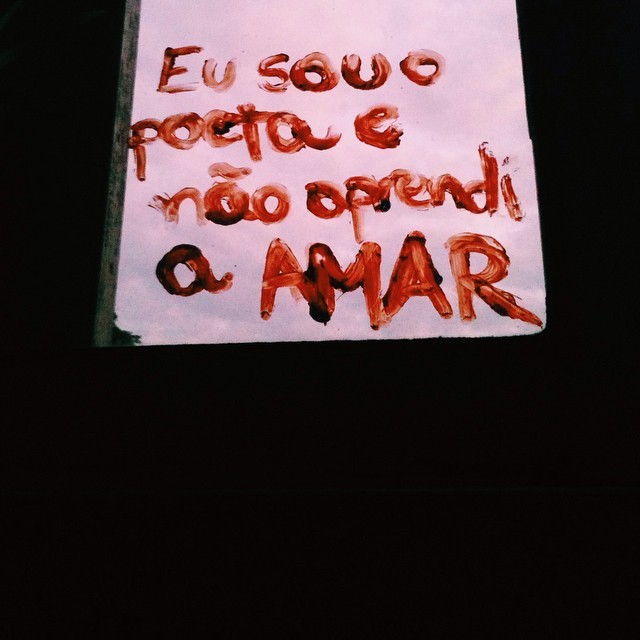 Eu sou o
poeta e
não aprendi
a AMAR